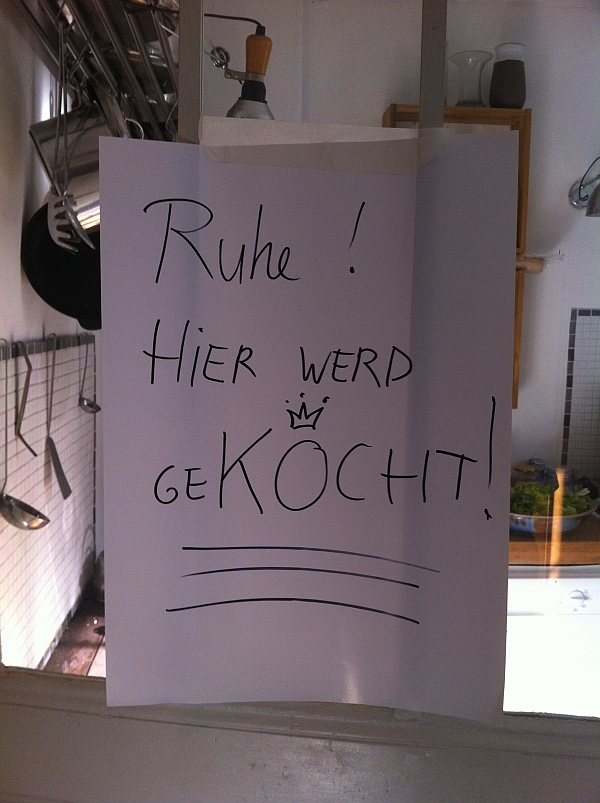 Ruhe!
HiER WERD
GEKOCHT!